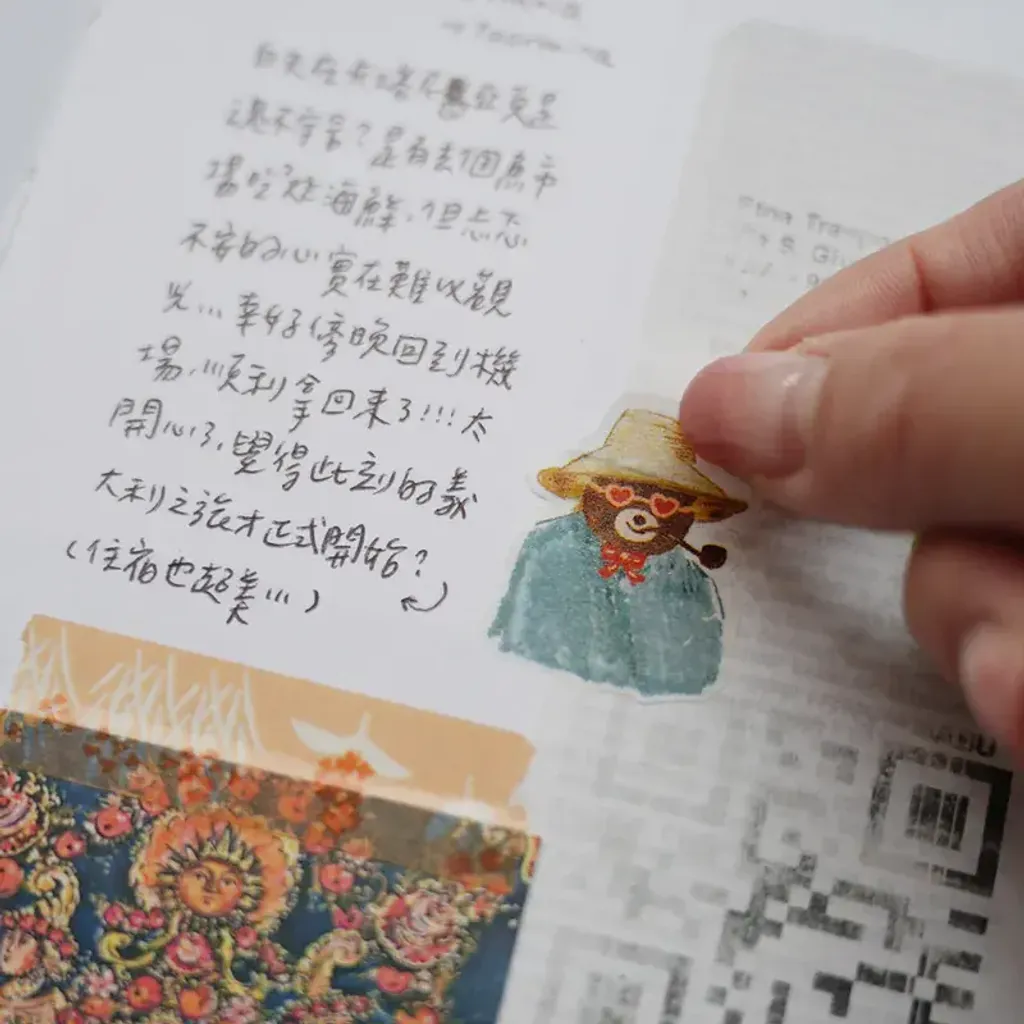 → Taormina
白天在卡塔尼亞真是
魂不守舍？是有去個魚市
場吃炸海鮮，但忐忑
不安的心實在難以觀
光...幸好傍晚回到機
場，順利拿回來了!!!太
開心了，覺得此刻的義
大利之旅才正式開始？
（住宿也超美...）
Etna Tra